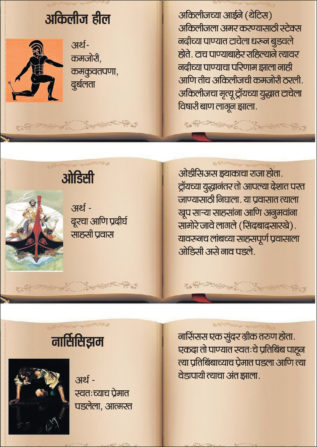 अकिलीज हील
अर्थ-
कमजोरी,
कमकुवतपणा,
दुर्बलता
अकिलीजच्या आईने (थेटिस)
अकिलीजला अमर करण्यासाठी स्टेक्स
नदीच्या पाण्यात टाचेला धरून बुडवले
होते. टाच पाण्याबाहेर राहिल्याने त्यावर
नदीच्या पाण्याचा परिणाम झाला नाही
आणि तीच अकिलीजची कमजोरी ठरली.
अकिलीजचा मृत्यू ट्रॉयच्या युद्धात टाचेला
विषारी बाण लागून झाला.
ओडिसी
अर्थ -
दूरचा आणि प्रदीर्घ
साहसी प्रवास
ओडीसिअस इथाकाचा राजा होता.
ट्रॉयच्या युद्धानंतर तो आपल्या देशात परत
जाण्यासाठी निघाला. या प्रवासात त्याला
खूप साऱ्या साहसांना आणि अनुभवांना
सामोरे जावे लागले (सिंदबादसारखे).
यावरूनच लांबच्या साहसपूर्ण प्रवासाला
ओडिसी असे नाव पडले.
नार्सिसिझम
अर्थ -
स्वतःच्याच प्रेमात
पडलेला, आत्मरत
नार्सिसस एक सुंदर ग्रीक तरुण होता.
एकदा तो पाण्यात स्वतःचे प्रतिबिंब पाहून
त्या प्रतिबिंबाच्याच प्रेमात पडला आणि त्या
वेडापायी त्याचा अंत झाला.